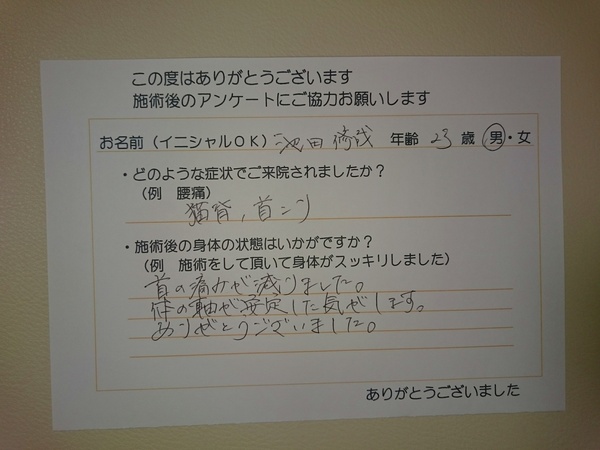 この度はありがとうございます
施術後のアンケートにご協力お願いします
お名前(イニシャルOK) 池田 修哉 年齢 23 歳 男・女
・どのような症状でご来院されましたか?
(例 腰痛)
猫背、首こり
・施術後の身体の状態はいかがですか?
(例 施術をして頂いて身体がスッキリしました)
首の痛みが減りました。
体の軸が安定した気がします。
ありがとうございました。
ありがとうございました